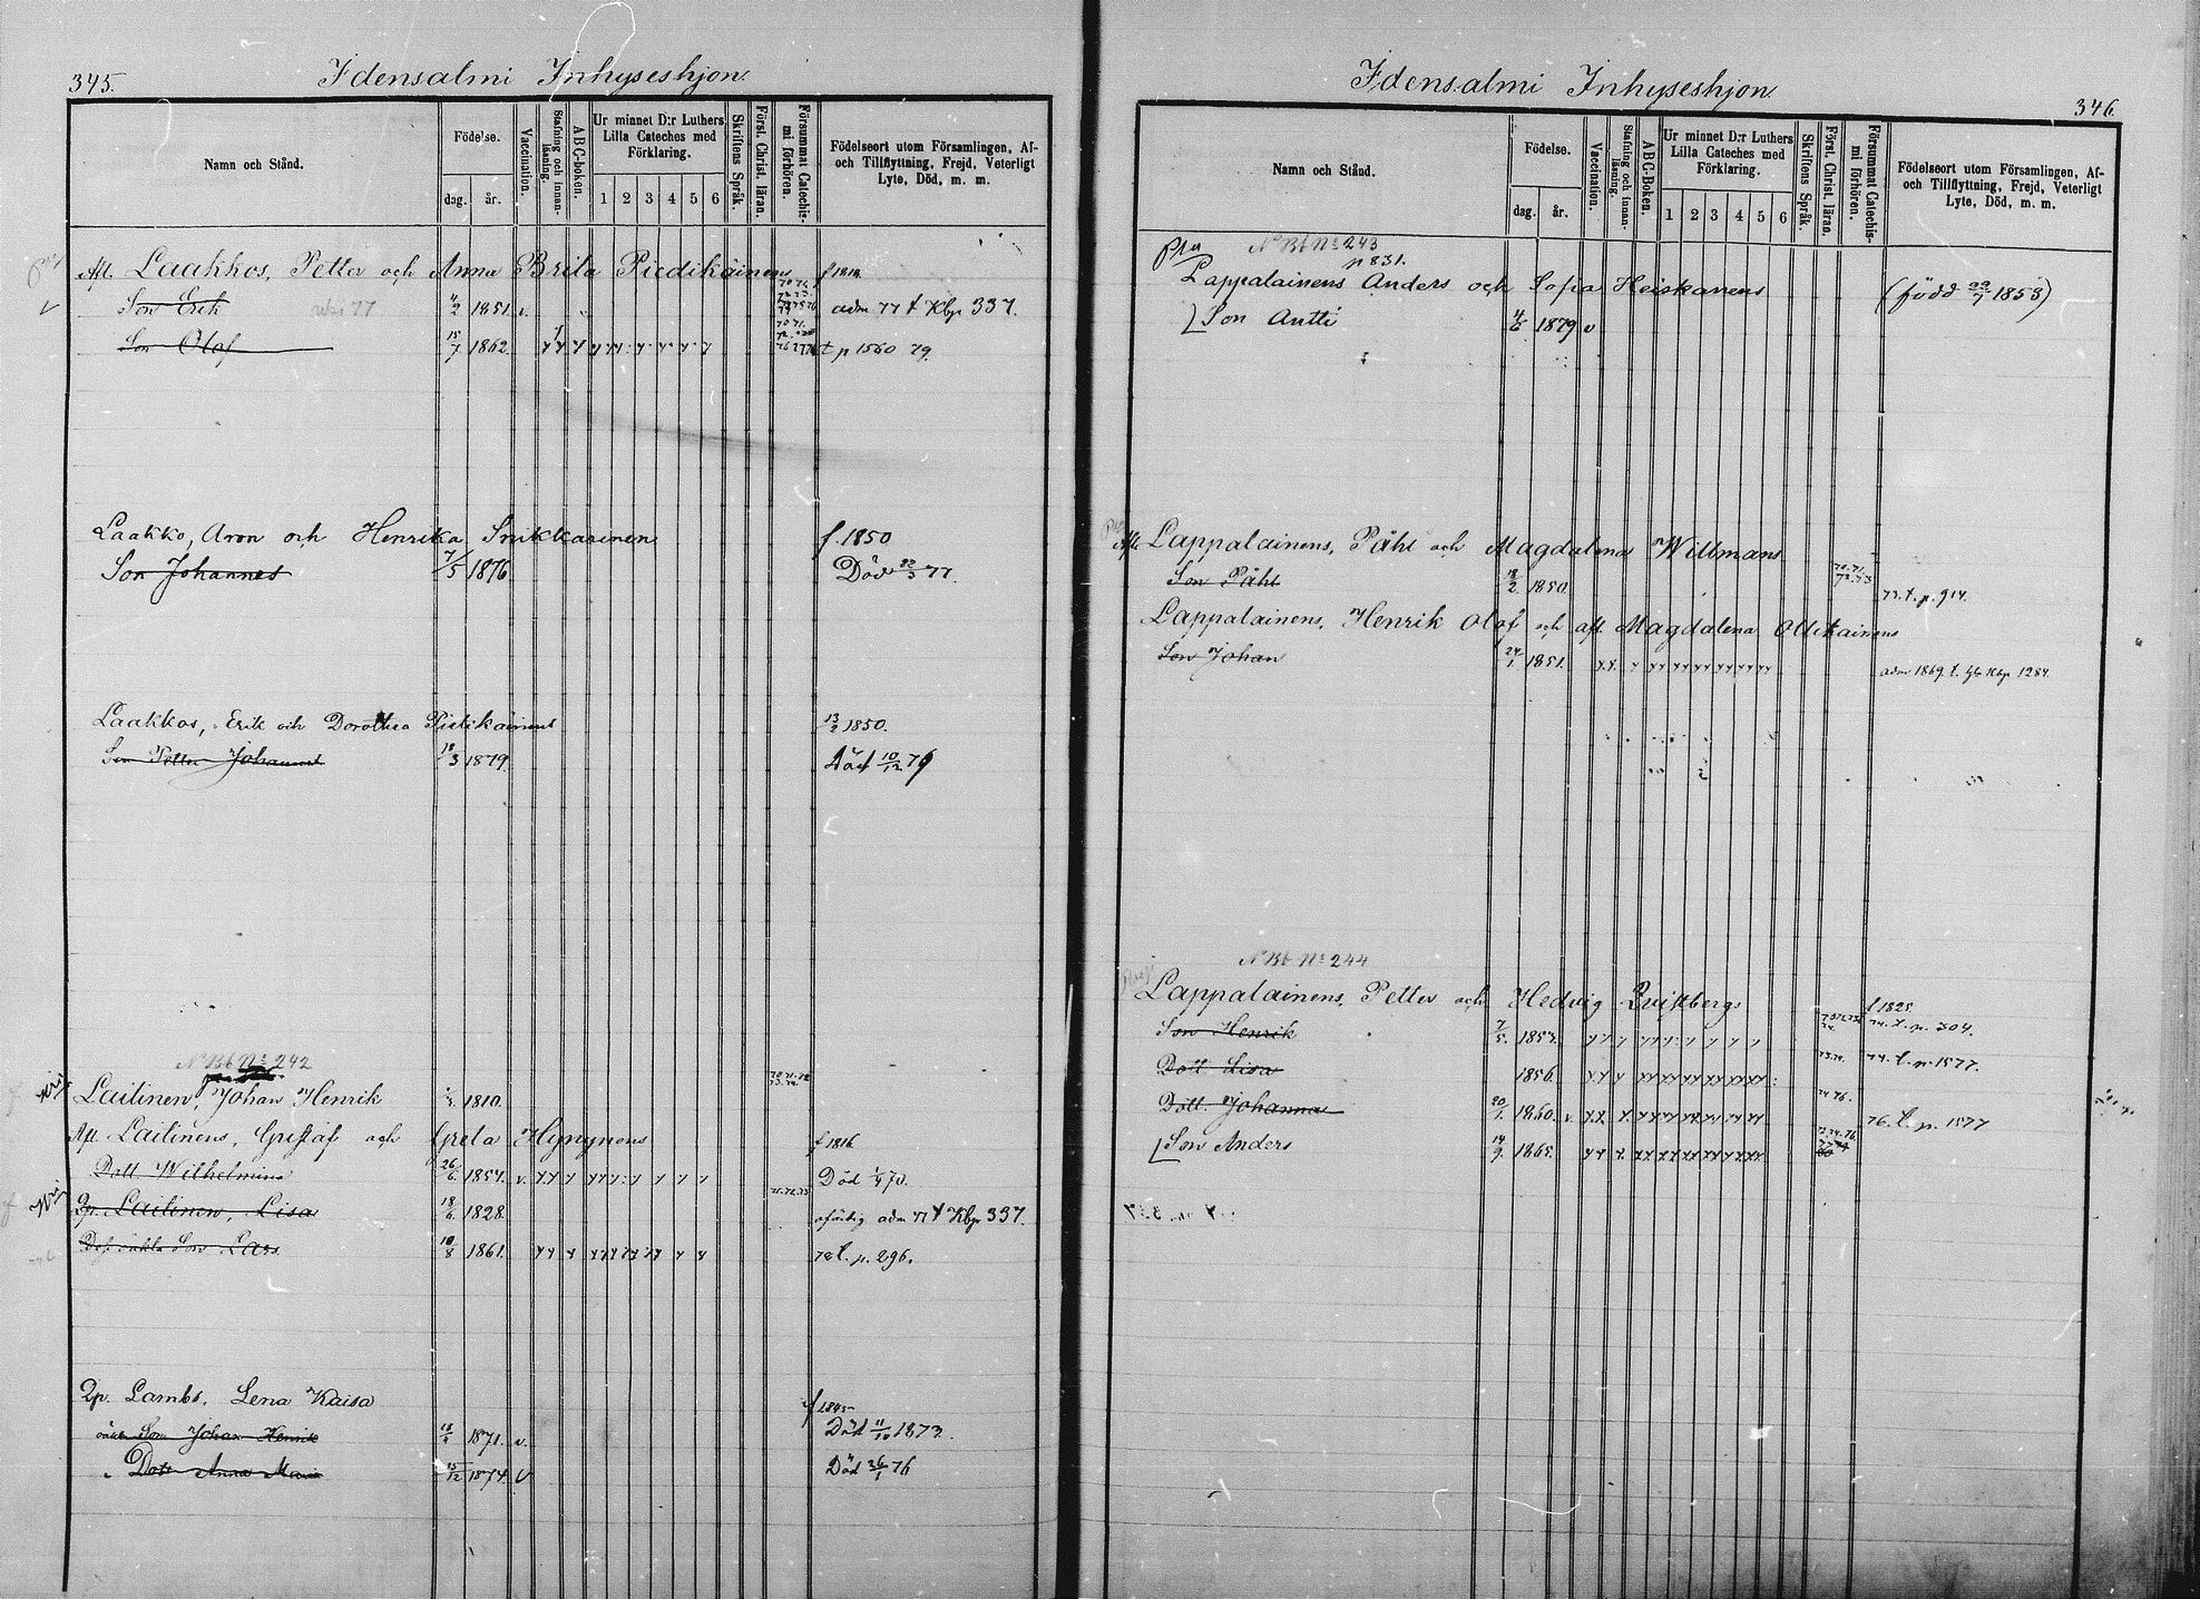 345.
Idensalmi Inhyseshjon
Namn och Stånd.
Födelse.
dag.
år.
Vaccination.
Stafning och innan-läsning.
ABC-boken.
Ur minnet D:r Luthers Lilla Cateches med Förklaring.
1 2 3 4 5 6
Skriftens Språk.
Först. Christ. läran.
Försummat Catechis-mi förhören.
Födelseort utom Församlingen, Af- och Tillflyttning, Frejd, Veterligt Lyte, Död, m. m.
Afl. Laakkos, Petter och Anna Brita Piedikäinens f 1818.
Son Erik 4/2 1851. v. adm 77 t Kbp 337.
Son Olof 15/7 1862. t p 1560 79.
Laakko, Aron och Henrika f. 1850
Son Johannes 7/5 1876 Död 22/3 77.
Laakkos, Erik och Dorothea Pietikäinens 13/2 1850.
Son Petter Johannes 18/3 1879. Död 10/12 79
N Bb No 242
Lailinen, Johan Henrik 1810.
Afl. Lailinens, Gustaf och Greta Hynynens f 1816
Dott Wilhelmina 26/6. 1854. v. Död 1/4 70.
Qp. Lailinen, Lisa 18/6. 1828. ofärdig adm 77 t Kbp 337.
Dess oäkta Son Lars 10/8 1861. 78 t. p. 296.
Qp. Lambs. Lena Kaisa f 1845
oäkta Son Johan Henrik 1871. v. Död 11/10 1873.
" Dotr Anna Maria 15/12 1874. v Död 26/1 76
Idensalmi Inhyseshjon
346.
Namn och Stånd.
Födelse.
dag.
år.
Vaccination.
Stafning och innan-läsning.
ABC-Boken.
Ur minnet D:r Luthers Lilla Cateches med Förklaring.
1 2 3 4 5 6
Skriftens Språk.
Först. Christ. läran.
Försummat Catechis-mi förhören.
Födelseort utom Församlingen, Af- och Tillflyttning, Frejd, Veterligt Lyte, Död, m. m.
N Bb No 243
p 831.
Lappalainens Anders och Sofia Heiskanens (född 22/7 1853)
Son Antti 4/6 1879 v
Afl. Lappalainens, Påhl och Magdalena Willmans
Son Påhl 18/2 1850. 73. t. p. 914.
Lappalainens, Henrik Olof och afl. Magdalena Ollikainens
Son Johan 24/1 1851. adm 1869. t. Kbp 1284.
N Bb No 244
Lappalainens, Petter och Hedvig Qvistbergs f 1825.
Son Henrik 7/5. 1853. 74. t. p. 304.
Dott Lisa 1856. 74. t. p. 1577.
Dott. Johanna 20/7. 1860. v. 76. t. p. 1577
Son Anders 14/9. 1865.